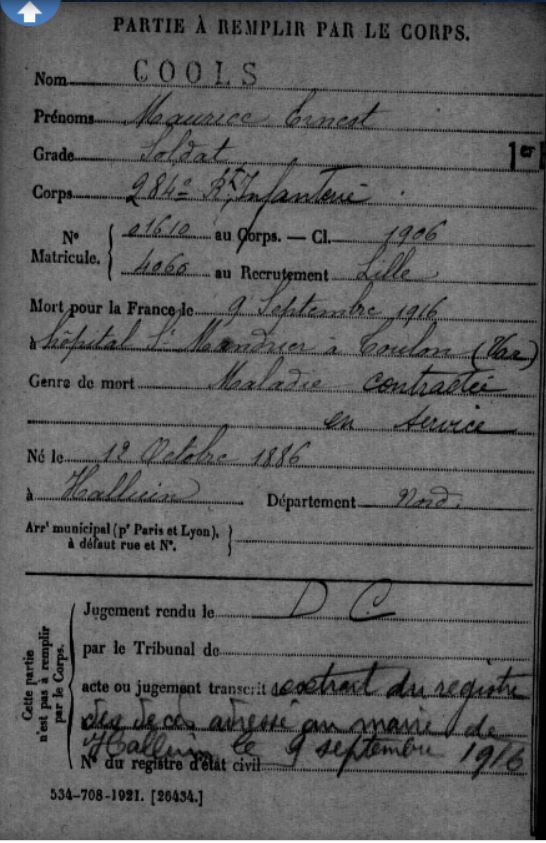 PARTIE À REMPLIR PAR LE CORPS.
Nom COOLS
Prénoms Maurice Ernest
Grade Soldat
1er
Corps 284e Rt Infanterie
No Matricule. { 01610 au Corps. — Cl. 1906
4060 au Recrutement Lille
Mort pour la France le 9 Septembre 1916
à hôpital St Mandrier à Toulon (Var)
Genre de mort Maladie contractée
en service
Né le 12 Octobre 1886
à Halluin Département Nord.
Arrt municipal (pr Paris et Lyon), à défaut rue et No. }
Cette partie n'est pas à remplir par le Corps. {
Jugement rendu le D C
par le Tribunal de
acte ou jugement transcrit extrait du registre
des décès adressé au maire de
Halluin le 9 septembre 1916
No du registre d'état civil
534-708-1921. [26434.]